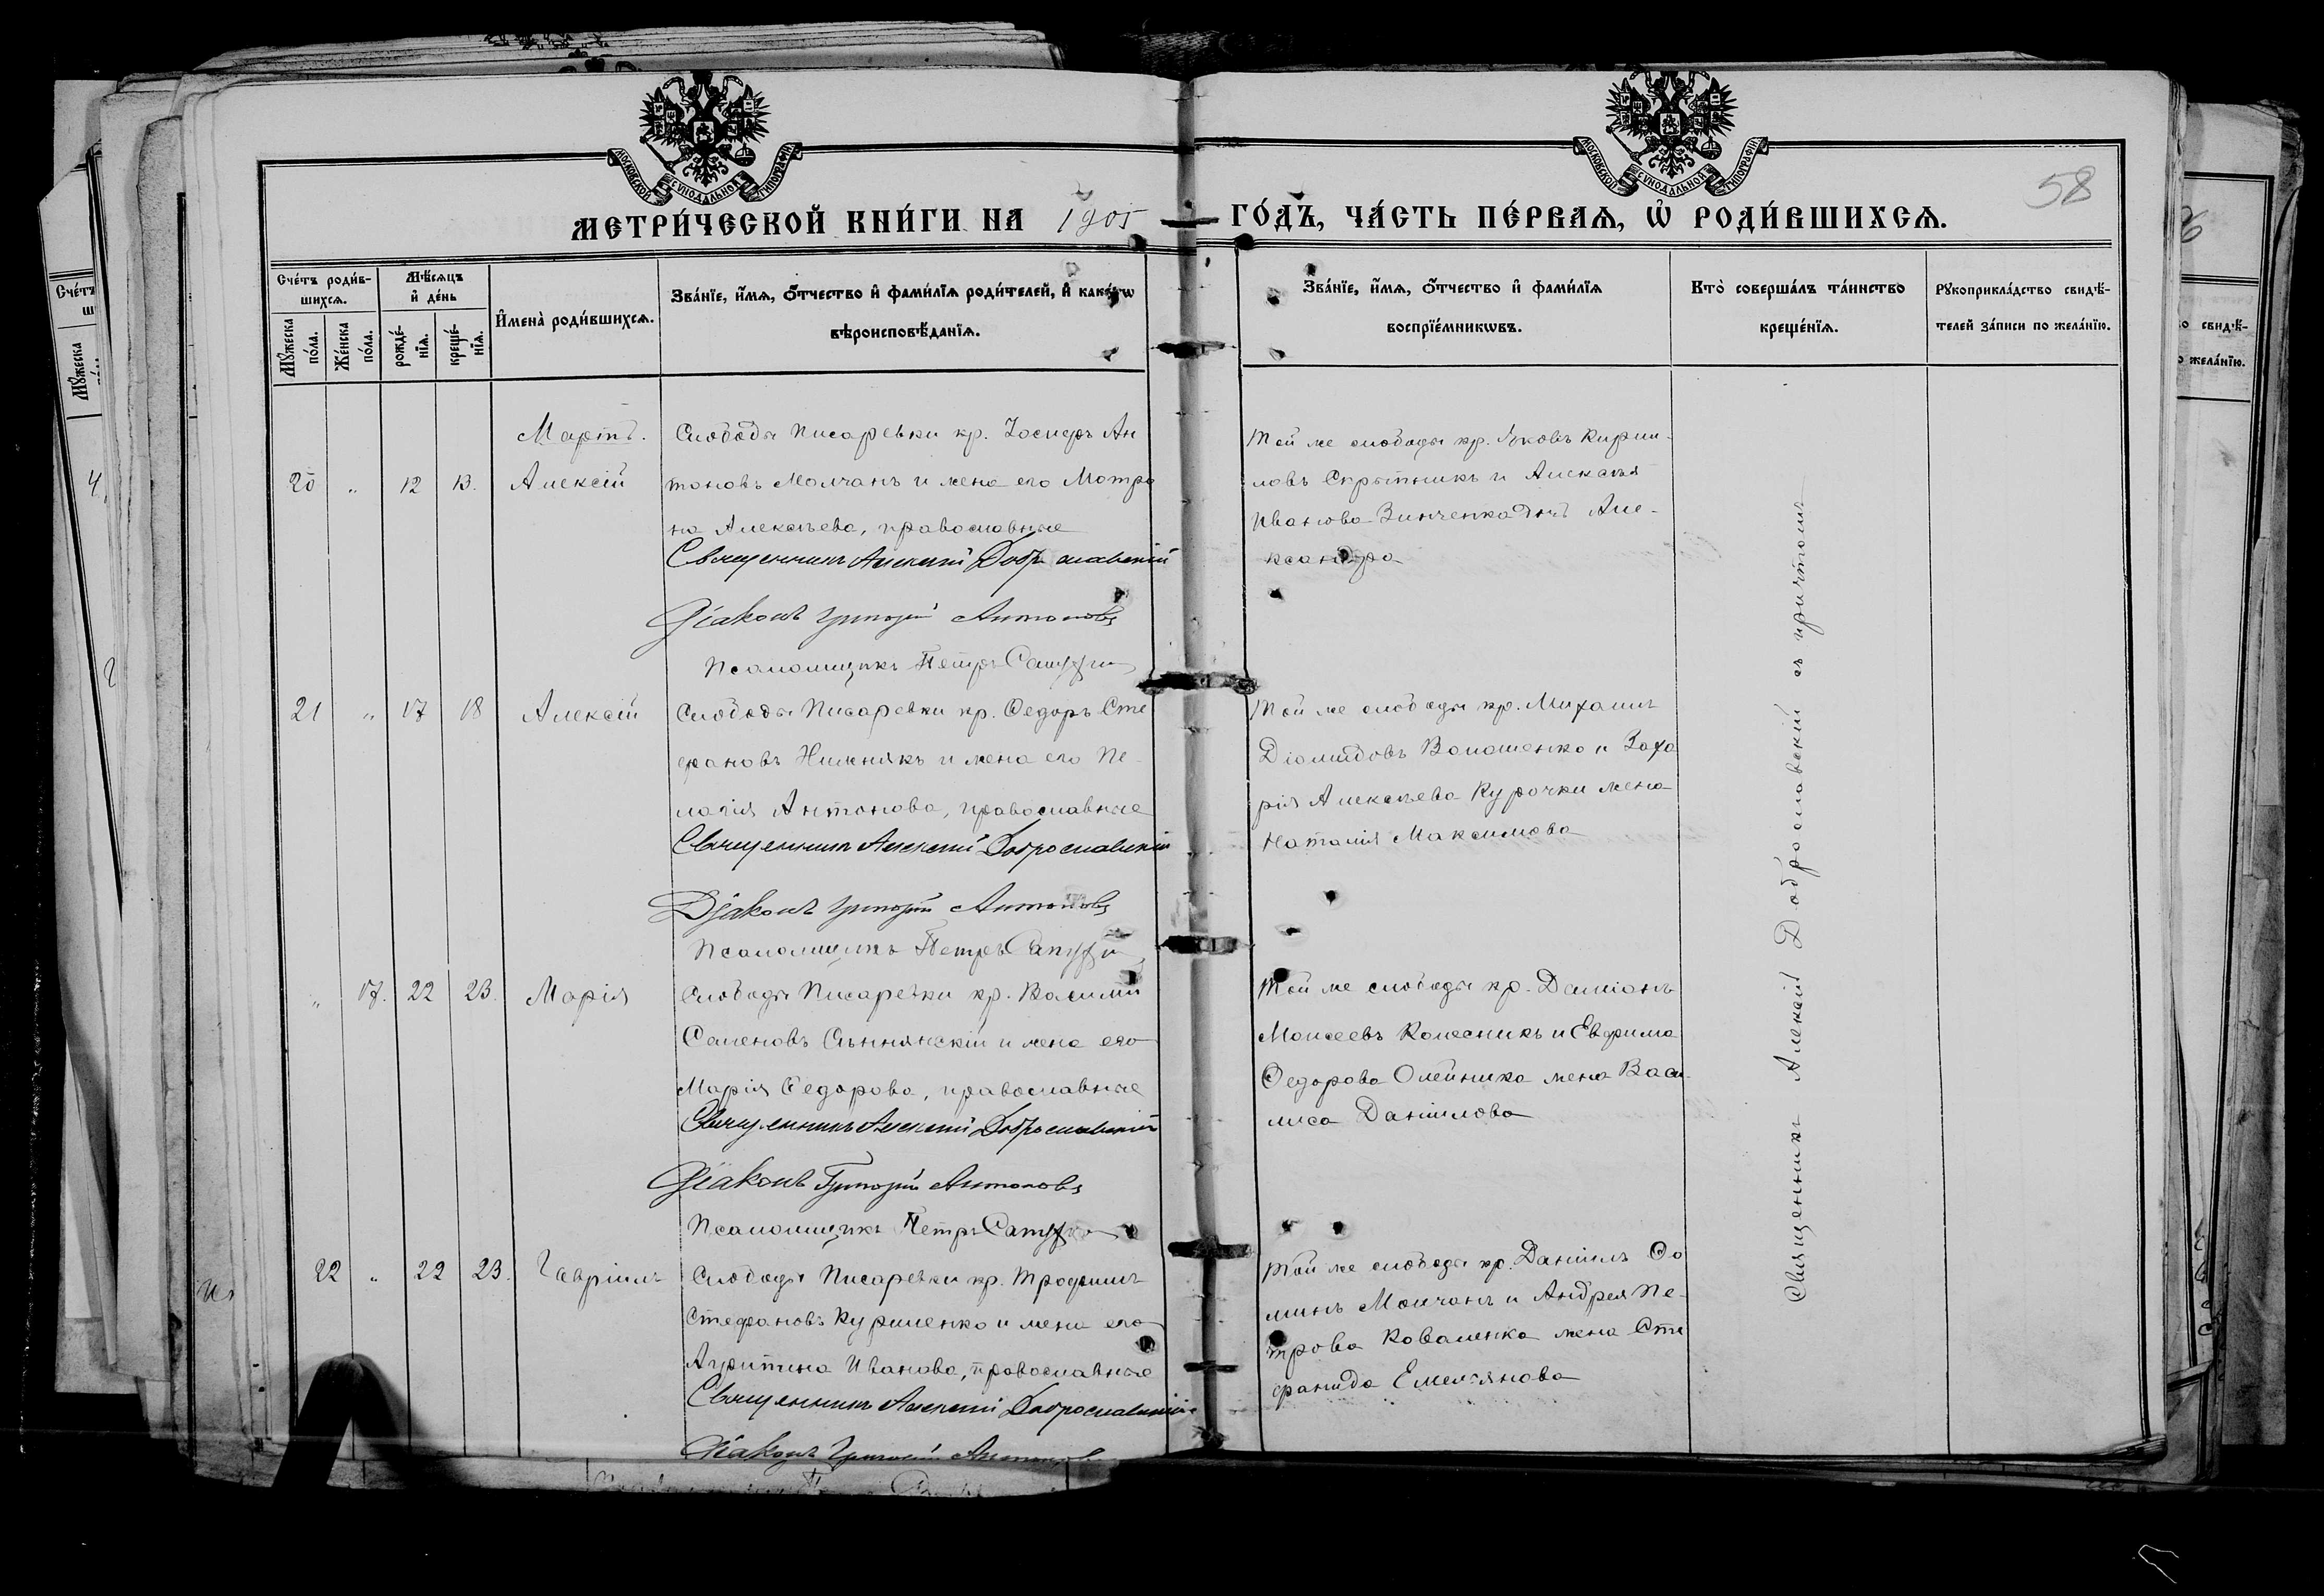 МОСКОВСКОЙ СУНОДАЛЬНОЙ ТИПОГРАФІИ
МОСКОВСКОЙ СУНОДАЛЬНОЙ ТИПОГРАФІИ
58
МЕТРИ́ЧЕСКОЙ КНИ́ГИ НА 1905 ГО́ДЪ, ЧА́СТЬ ПЕ́РВАЯ, Ѡ РОДИ́ВШИХСЯ.
Сче́тъ роди́в-
шихся.
Мꙋ́жеска
по́ла.
Же́нска
по́ла.
Мѣ́сяцъ
и҆ де́нь
рожде́-
нїя.
креще́-
нїя.
И҆мена̀ роди́вшихся.
Зва́нїе, и҆́мя, ѻ҆́тчество и҆ фами́лїя роди́телей, и҆ како́гѡ
вѣроисповѣ́данїя.
Зва́нїе, и҆́мя, ѻ҆́тчество и҆ фами́лїя
воспрїе́мникѡвъ.
Кто̀ соверша́лъ та́инство
креще́нїя.
Рꙋкоприкла́дство свидѣ́-
телей за́писи по жела́нїю.
Мартъ.
20 " 12 13. Алексій
Слободы Писаревки кр. Іосифъ Ан
тоновъ Молчанъ и жена его Матро
на Алексѣева, православные
Священникъ Алексій Доброславскій
Діаконъ Григорій Антоновъ
Псаломщикъ Петръ
Той же слободы кр. Яковъ Кирил-
ловъ Скрытникъ и Алексѣя
Иванова Зинченка дочь Але-
ксандра
21 " 17 18 Алексій
Слободы Писаревки кр. Ѳедоръ Сте
фановъ Нижникъ и жена его Пе-
лагія Антонова, православные
Священникъ Алексій Доброславскій
Діаконъ Григорій Антоновъ
Псаломщикъ Петръ
Той же слободы кр. Михаилъ
Діомидовъ Волошенко и Заха
рія Алексѣева Курочки жена
Наталія Максимова
" 17. 22 23. Марія
Слободы Писаревки кр. Василій
Семеновъ и жена его
Марія Ѳедорова, православные
Священникъ Алексій Доброславскій
Діаконъ Григорій Антоновъ
Псаломщикъ Петръ
Той же слободы кр. Даміанъ
Моисеевъ Колесникъ и Евфима
Ѳедорова Олейника жена Васи-
лиса Даніилова
22 " 22 23. Гавріилъ
Слободы Писаревки кр. Трофимъ
Стефановъ Куриленко и жена его
Иванова, православные
Священникъ Алексій Доброславскій
Діаконъ Григорій Антоновъ
Той же слободы кр. Даніилъ Ѳо
минъ Молчанъ и Андрея Пе-
трова Коваленка жена Сте
фанида Емельянова
Священникъ Алексій Доброславскій съ причтомъ